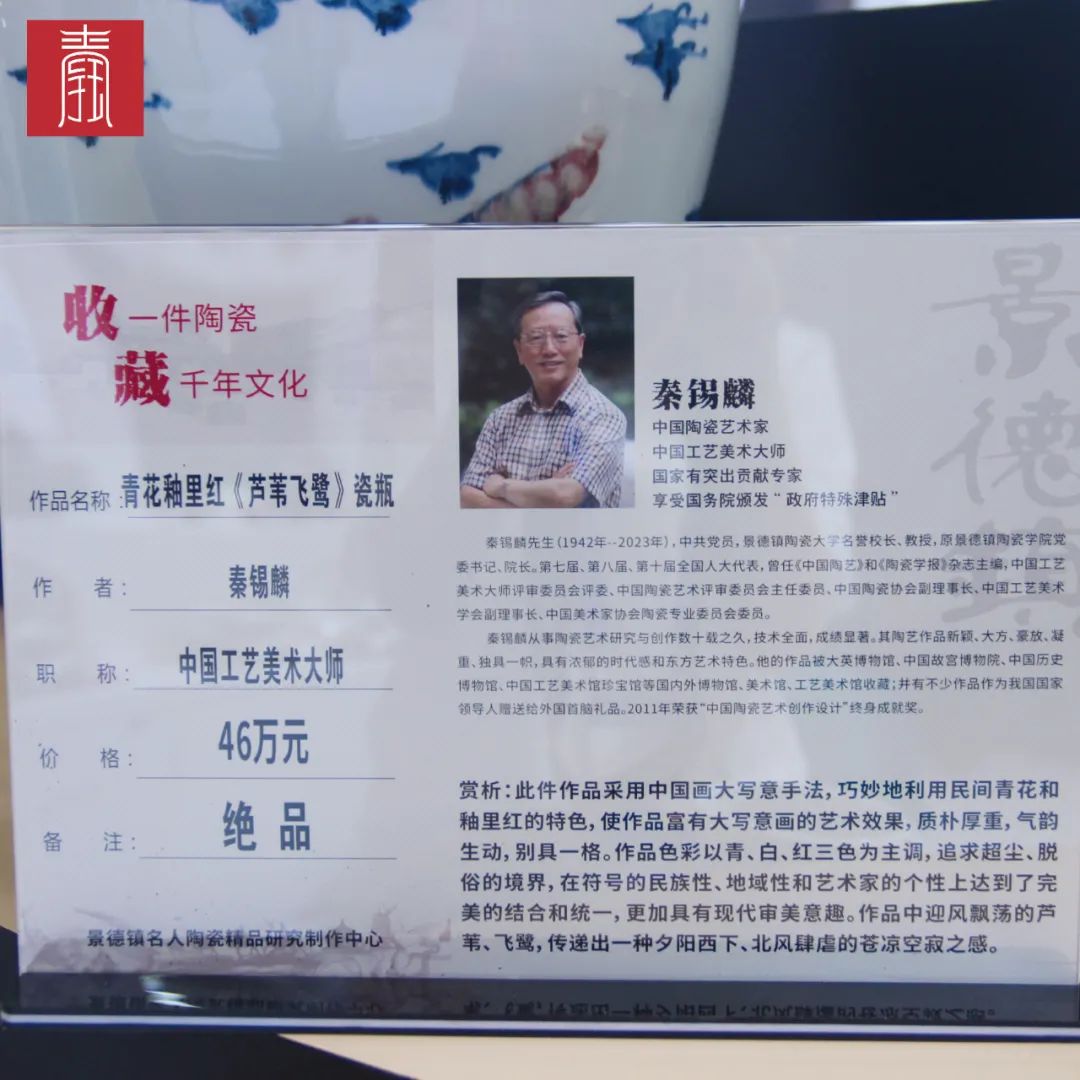 收一件陶瓷
藏千年文化
作品名称:青花釉里红《芦苇飞鹭》瓷瓶
作 者:秦锡麟
职 称:中国工艺美术大师
价 格:46万元
备 注:绝 品
景德镇名人陶瓷精品研究制作中心
秦锡麟
中国陶瓷艺术家
中国工艺美术大师
国家有突出贡献专家
享受国务院颁发“政府特殊津贴”
秦锡麟先生(1942年--2023年),中共党员,景德镇陶瓷大学名誉校长、教授,原景德镇陶瓷学院党
委书记、院长。第七届、第八届、第十届全国人大代表,曾任《中国陶艺》和《陶瓷学报》杂志主编,中国工艺
美术大师评审委员会评委、中国陶瓷艺术评审委员会主任委员、中国陶瓷协会副理事长、中国工艺美术
学会副理事长、中国美术家协会陶瓷专业委员会委员。
秦锡麟从事陶瓷艺术研究与创作数十载之久,技术全面,成绩显著。其陶艺作品新颖、大方、豪放、凝
重、独具一帜,具有浓郁的时代感和东方艺术特色。他的作品被大英博物馆、中国故宫博物院、中国历史
博物馆、中国工艺美术馆珍宝馆等国内外博物馆、美术馆、工艺美术馆收藏;并有不少作品作为我国国家
领导人赠送给外国首脑礼品。2011年荣获“中国陶瓷艺术创作设计”终身成就奖。
赏析:此件作品采用中国画大写意手法,巧妙地利用民间青花和
釉里红的特色,使作品富有大写意画的艺术效果,质朴厚重,气韵
生动,别具一格。作品色彩以青、白、红三色为主调,追求超尘、脱
俗的境界,在符号的民族性、地域性和艺术家的个性上达到了完
美的结合和统一,更加具有现代审美意趣。作品中迎风飘荡的芦
苇、飞鹭,传递出一种夕阳西下、北风肆虐的苍凉空寂之感。
景德镇